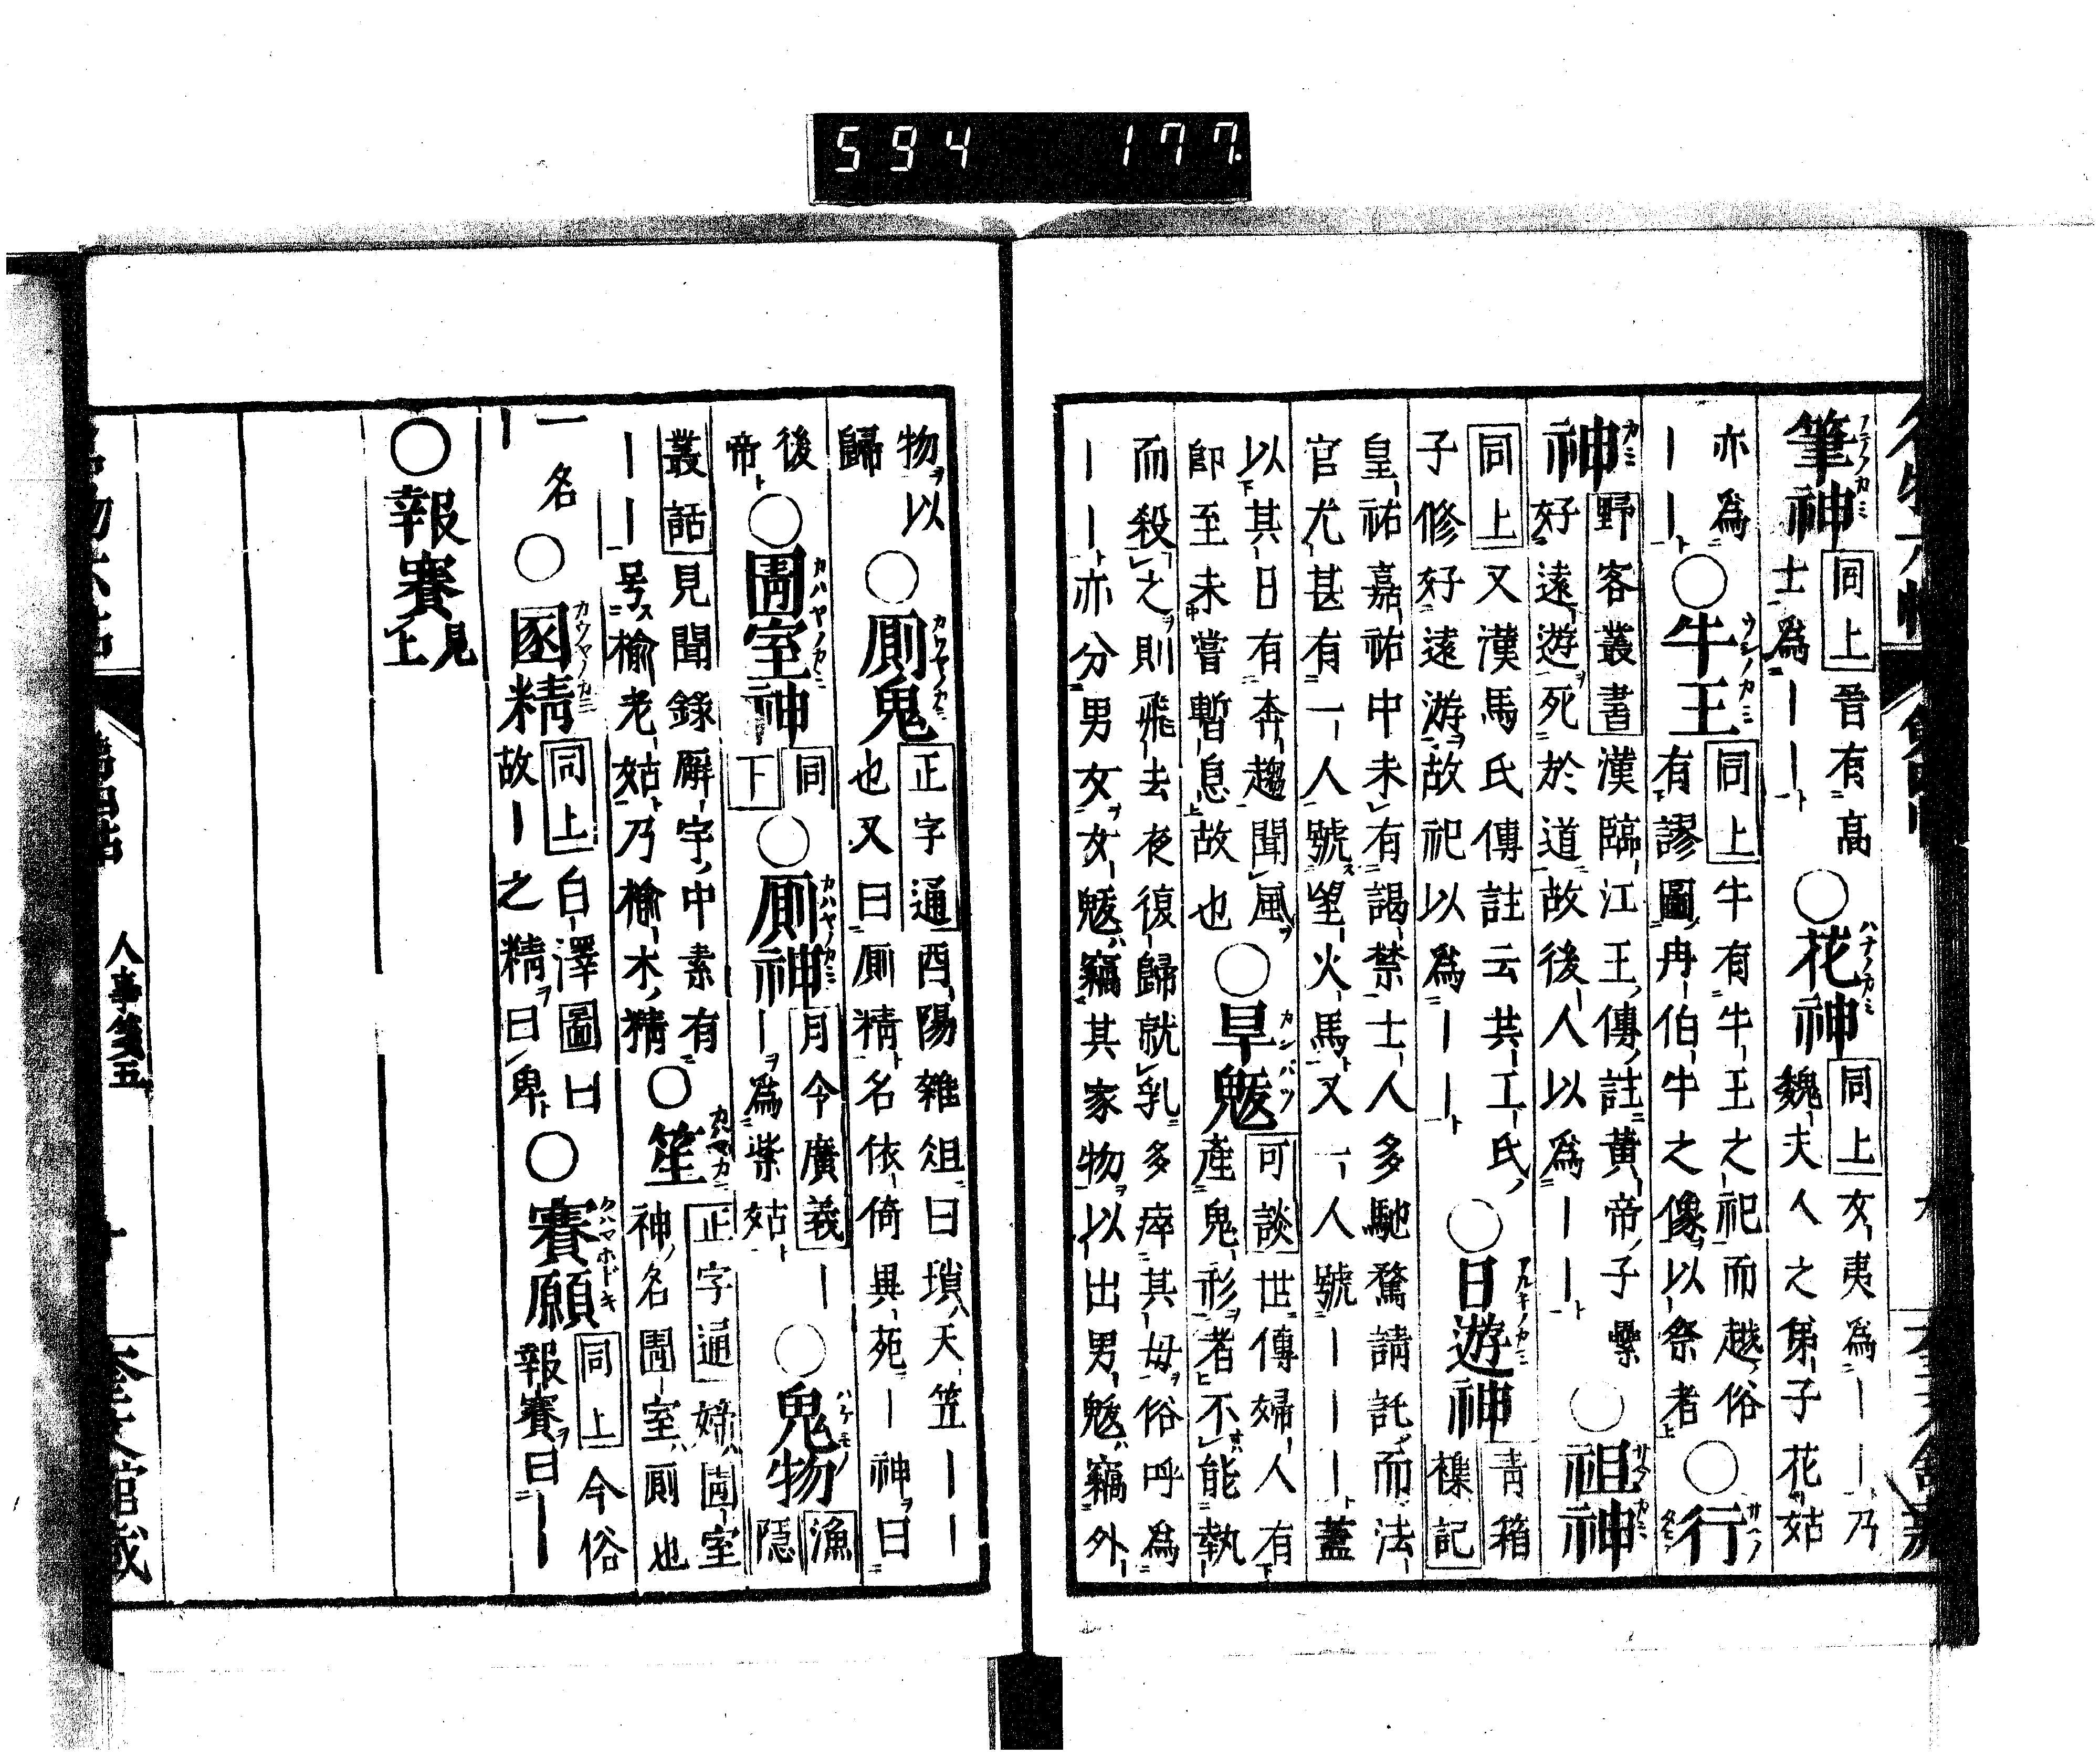 594 177
筆神 同上 晉有高士爲｜｜ ○花神 同上 女夷爲｜｜乃魏夫人之弟子花姑
亦爲｜｜ ○牛王 同上 牛有牛王之祀而越俗有謬圖冉伯牛之像以祭者 ○行
神 野客叢書 漢臨江王傳註黄帝子纍好遠遊死於道故後人以爲｜｜ ○祖神
同上 又漢馬氏傳註云共工氏子修好遠游故祀以爲｜｜ ○日遊神 青箱襍記
皇祐嘉祐中未有謁禁士人多馳騖請託而法官尤甚有一人號望火馬又一人號｜｜｜蓋
以其日有奔趨聞風即至未嘗暫息故也 ○旱魃 可談 世傳婦人有產鬼形者不能執
而殺之則飛去夜復歸就乳多瘁其母俗呼爲｜｜亦分男女女魃竊其家物以出男魃竊外
物以歸 ○厠鬼 正字通 酉陽雜俎曰瑣天笠｜｜也又曰厠精名依倚異苑｜神曰
後帝 ○圊室神 同下 ○厠神 月令廣義 ｜爲紫姑 ○鬼物 漁隱
叢話 見聞錄廨宇中素有｜｜｜号榆老姑乃榆木精 ○筀 正字通 嫦圊室神名圊室厠也
一名｜ ○圂精 同上 白澤圖曰故｜之精曰卑 ○賽願 同上 今俗報賽曰｜｜
○報賽 見上
人事箋五